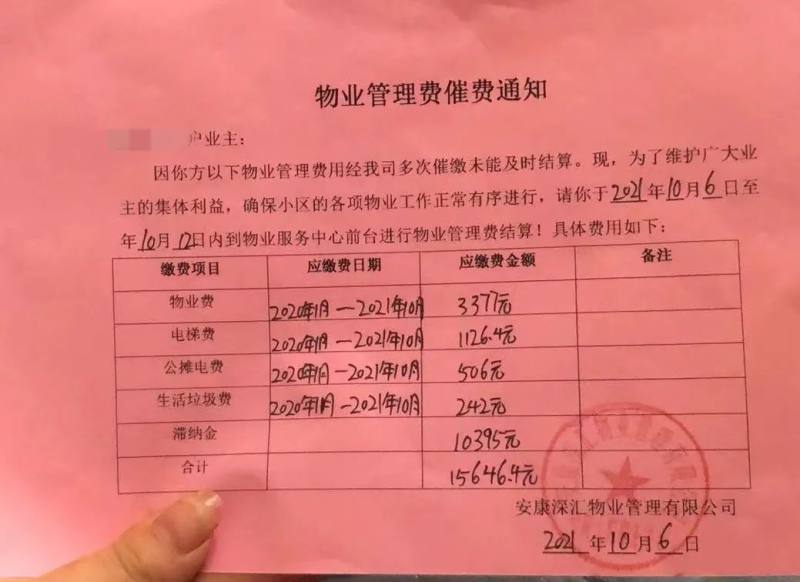 物业管理费催费通知
户业主：
因你方以下物业管理费用经我司多次催缴未能及时结算。现，为了维护广大业
主的集体利益，确保小区的各项物业工作正常有序进行，请你于2021年10月6日至
年10月12日内到物业服务中心前台进行物业管理费结算！具体费用如下：
缴费项目 应缴费日期 应缴费金额 备注
物业费 2020年1月—2021年10月 3377元
电梯费 2020年1月—2021年10月 1126.4元
公摊电费 2020年1月—2021年10月 506元
生活垃圾费 2020年1月—2021年10月 242元
滞纳金 10395元
合计 15646.4元
安康深汇物业管理有限公司
2021年10月6日